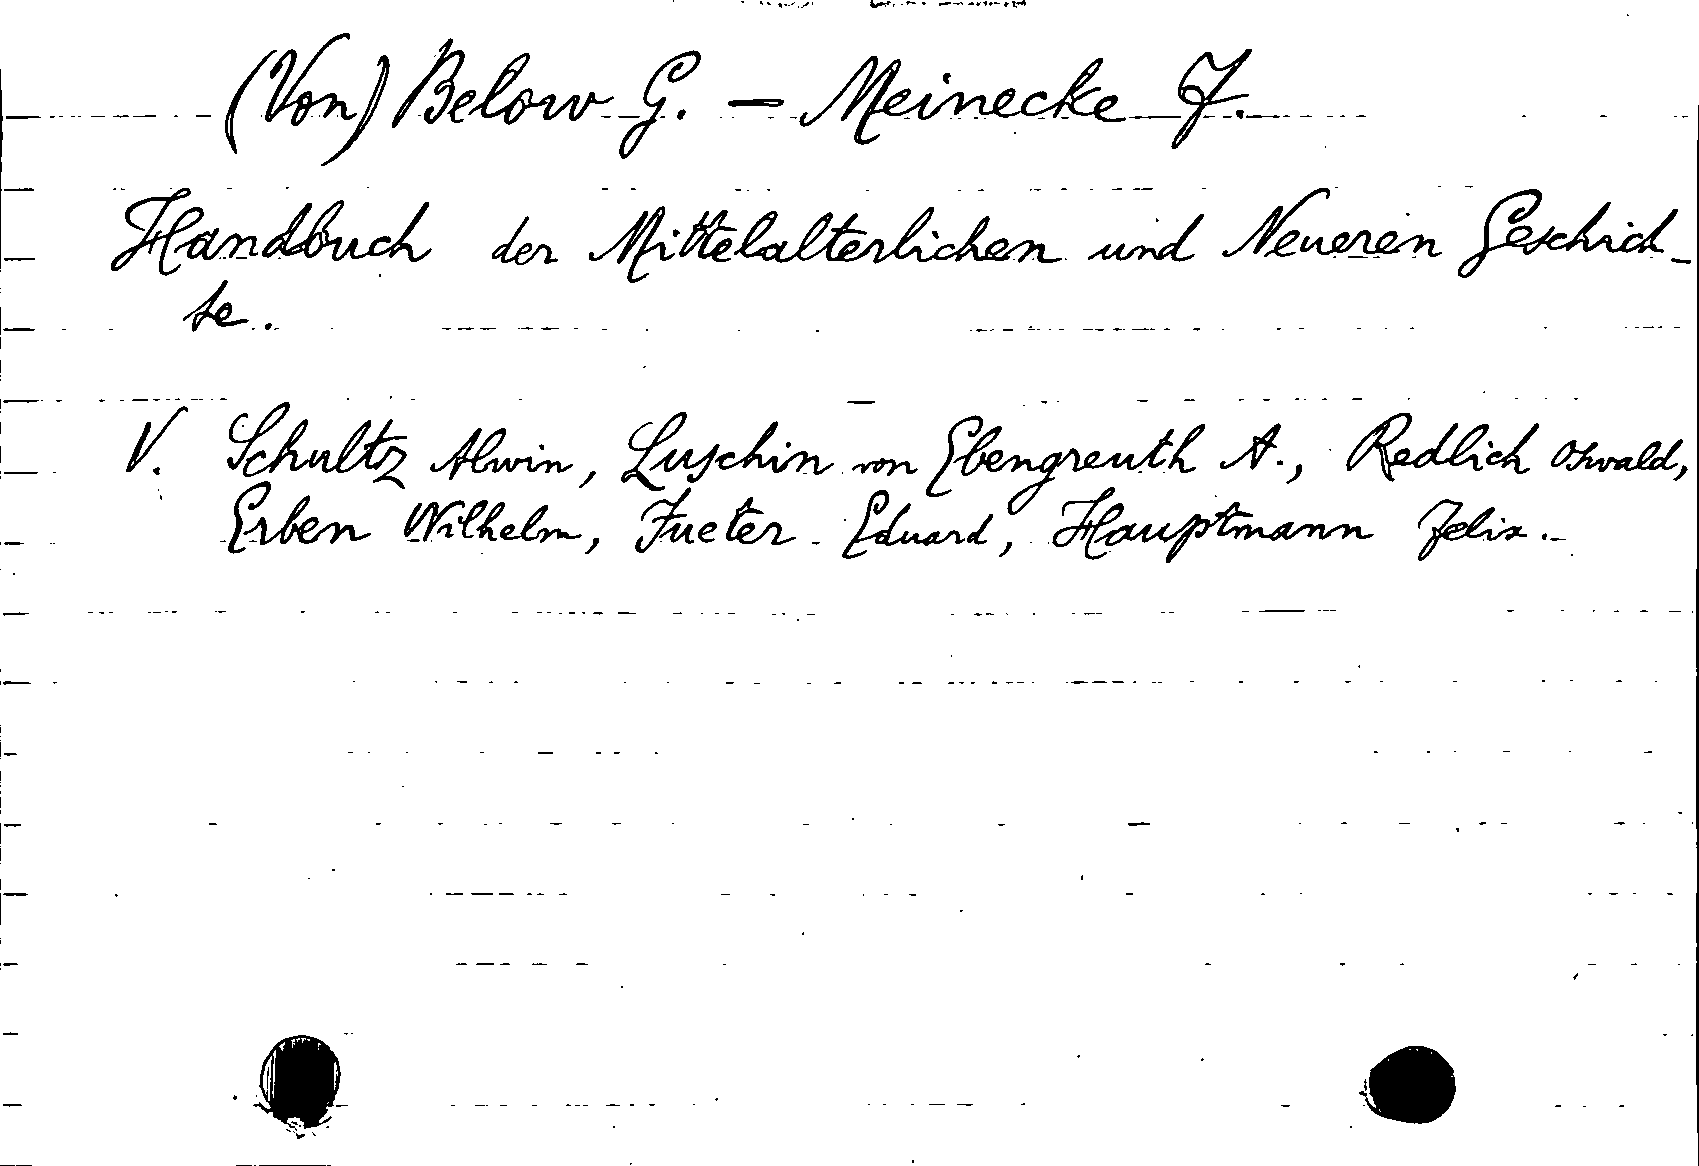 (Von) Below G. - Meinecke F.
Handbuch der Mittelalterlichen und Neueren Geschich-
te.
V. Schultz Alwin, Luschin von Ebengreuth A., Redlich Oswald,
Erben Wilhelm, Fueter Eduard, Hauptmann Felix.